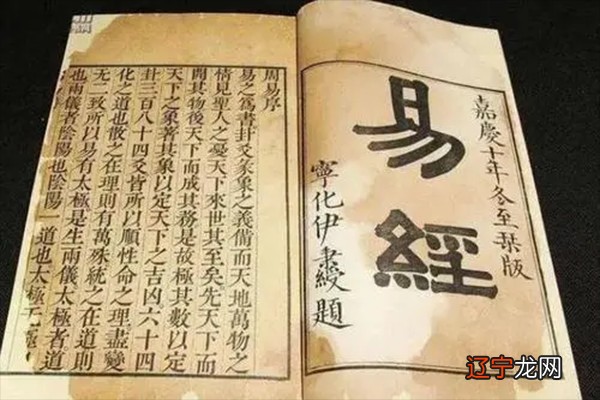 嘉慶十年冬至栞版
易經
寧化伊秉綬題
周易序
易之爲書卦爻彖象之義備而天地萬物之
情見聖人之憂天下來世其至矣先天下而
開其物後天下而成其務是故極其數以定
天下之象著其象以定天下之吉凶六十四
卦三百八十四爻皆所以順性命之理盡變
化之道也散之在理則有萬殊統之在道則
无二致所以易有太極是生兩儀太極者道
也兩儀者陰陽也陰陽一道也太極无極
辽宁龙网